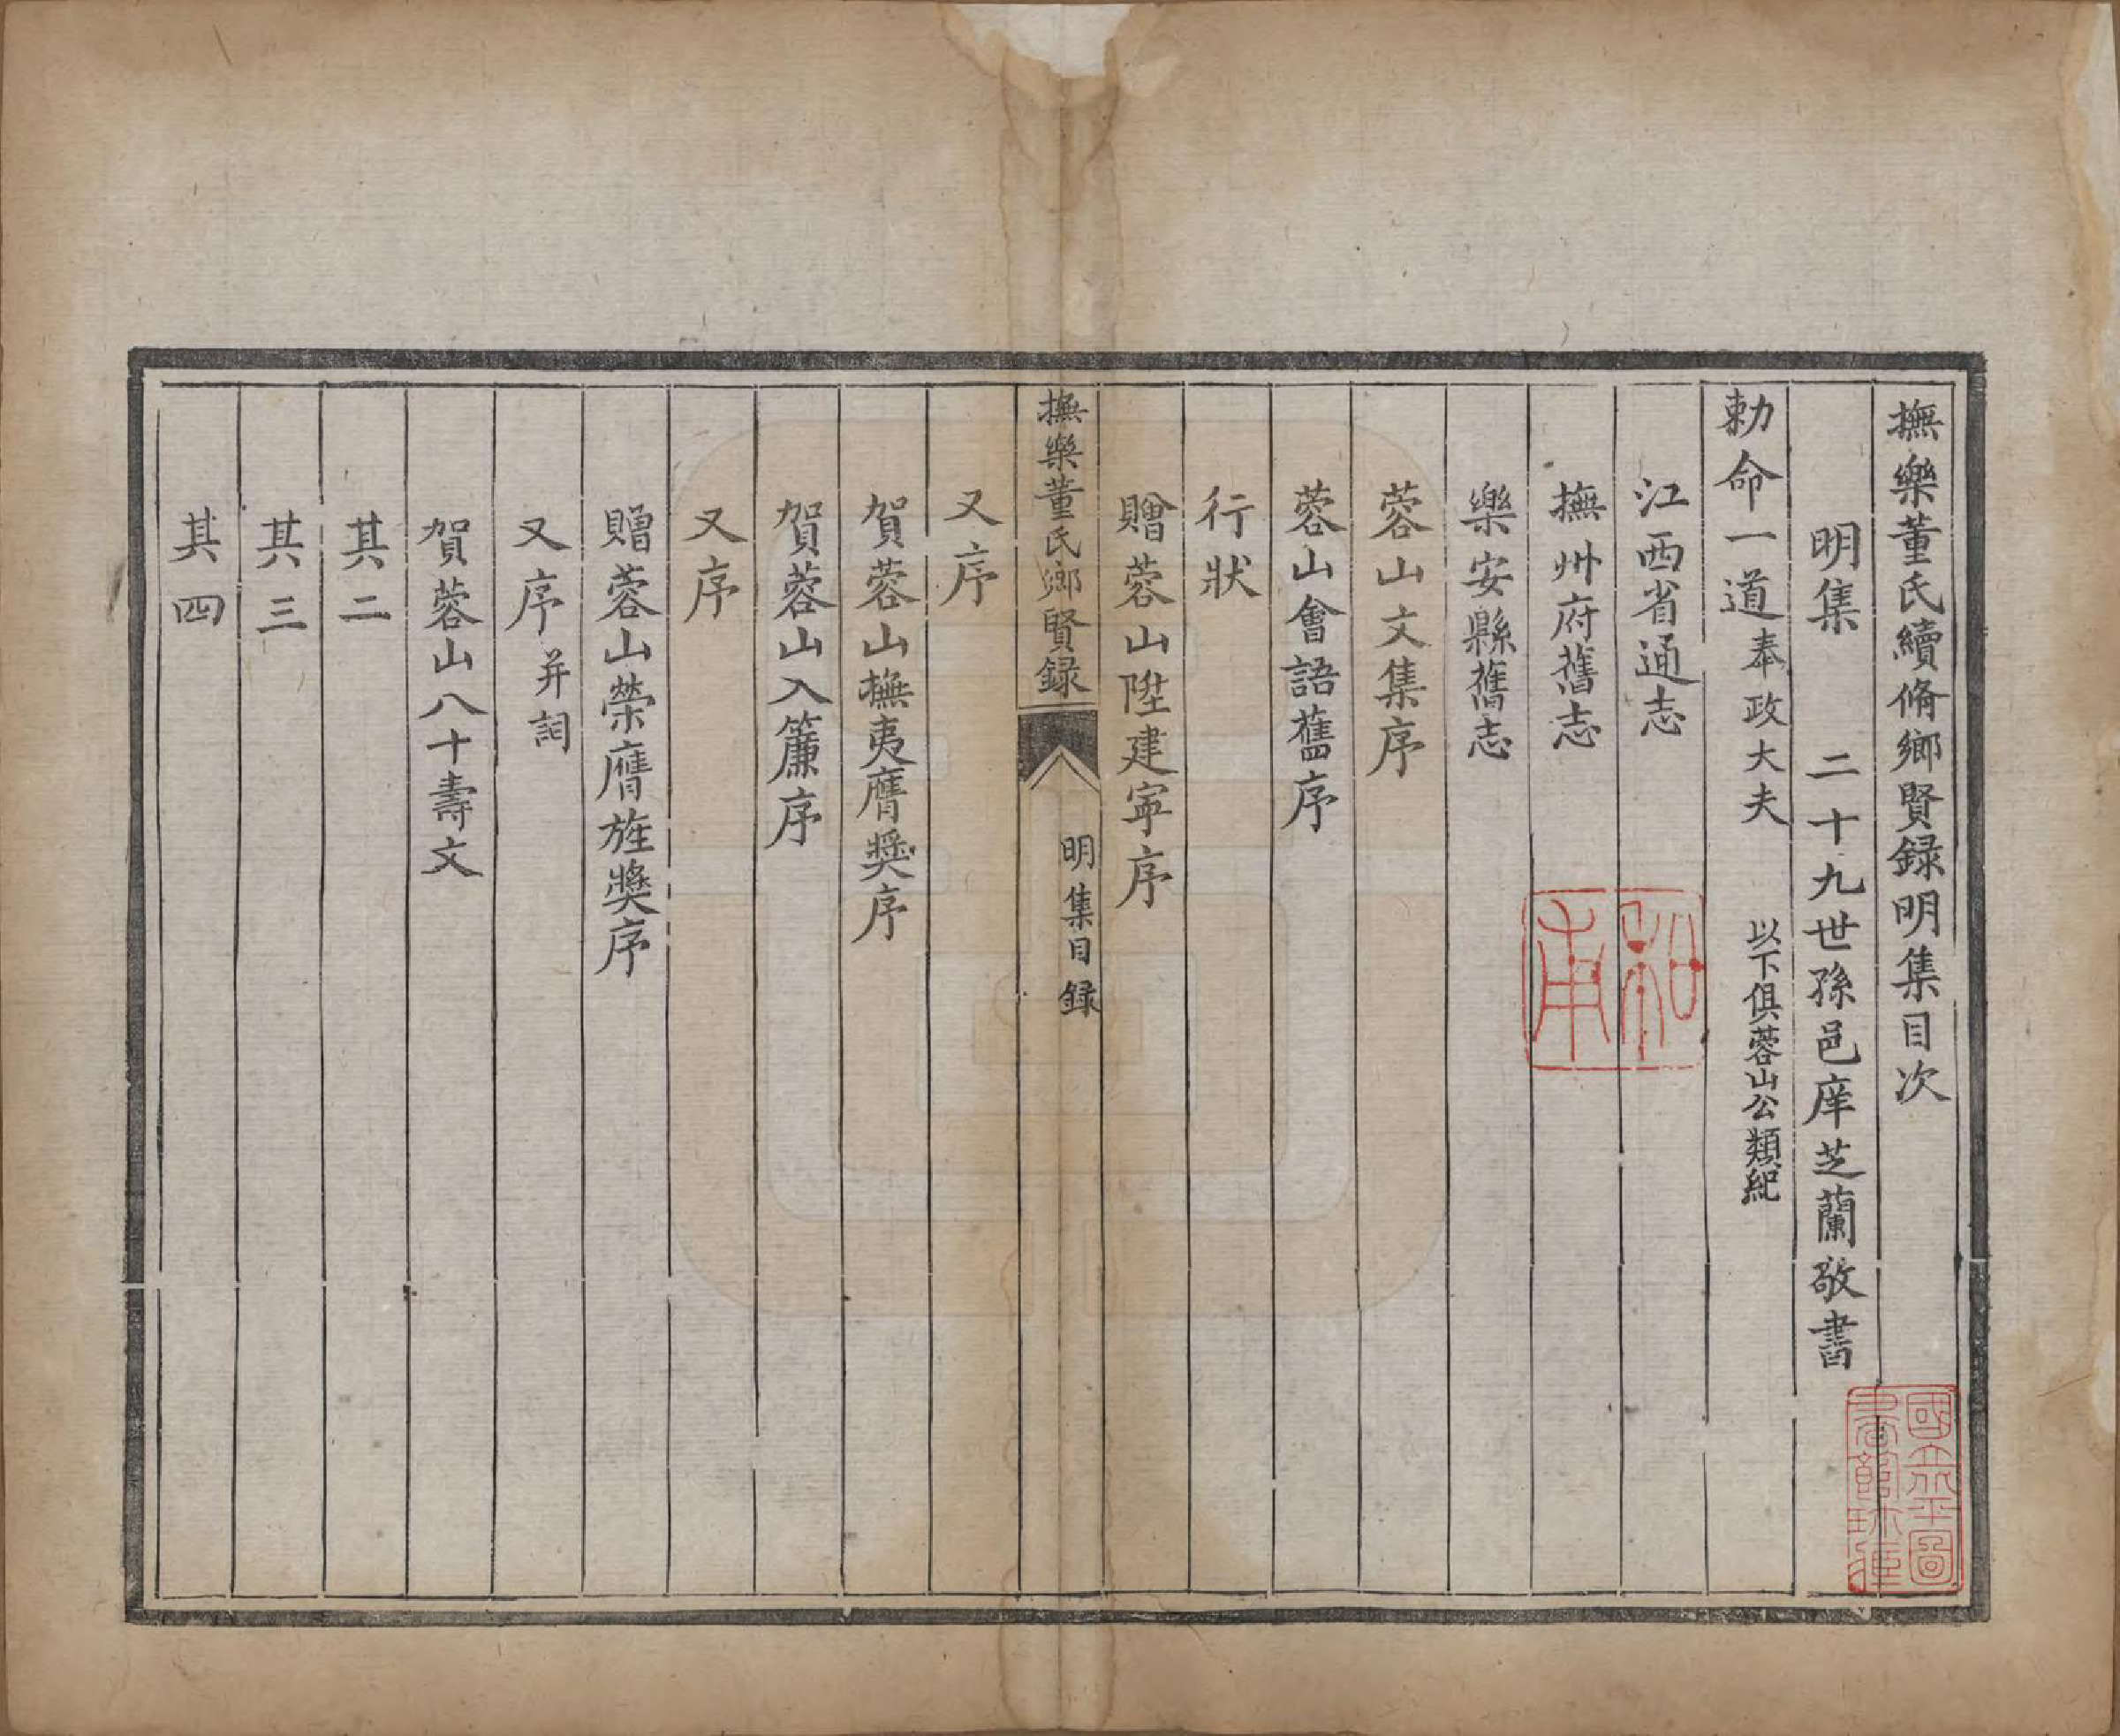 撫樂董氏續脩鄉賢録明集目次
明集 二十九世孫邑庠芝蘭敬書
勅命一道奉政大夫 以下俱蓉山公類紀
江西省通志
撫州府舊志
樂安縣舊志
蓉山文集序
蓉山會語舊序
行狀
贈蓉山陞建寧序
撫樂董氏鄉賢録 明集目録
又序
賀蓉山撫夷膺獎序
賀蓉山入簾序
又序
贈蓉山榮膺旌獎序
又序并詞
賀蓉山八十壽文
其二
其三
其四
國立北平圖書館珍藏